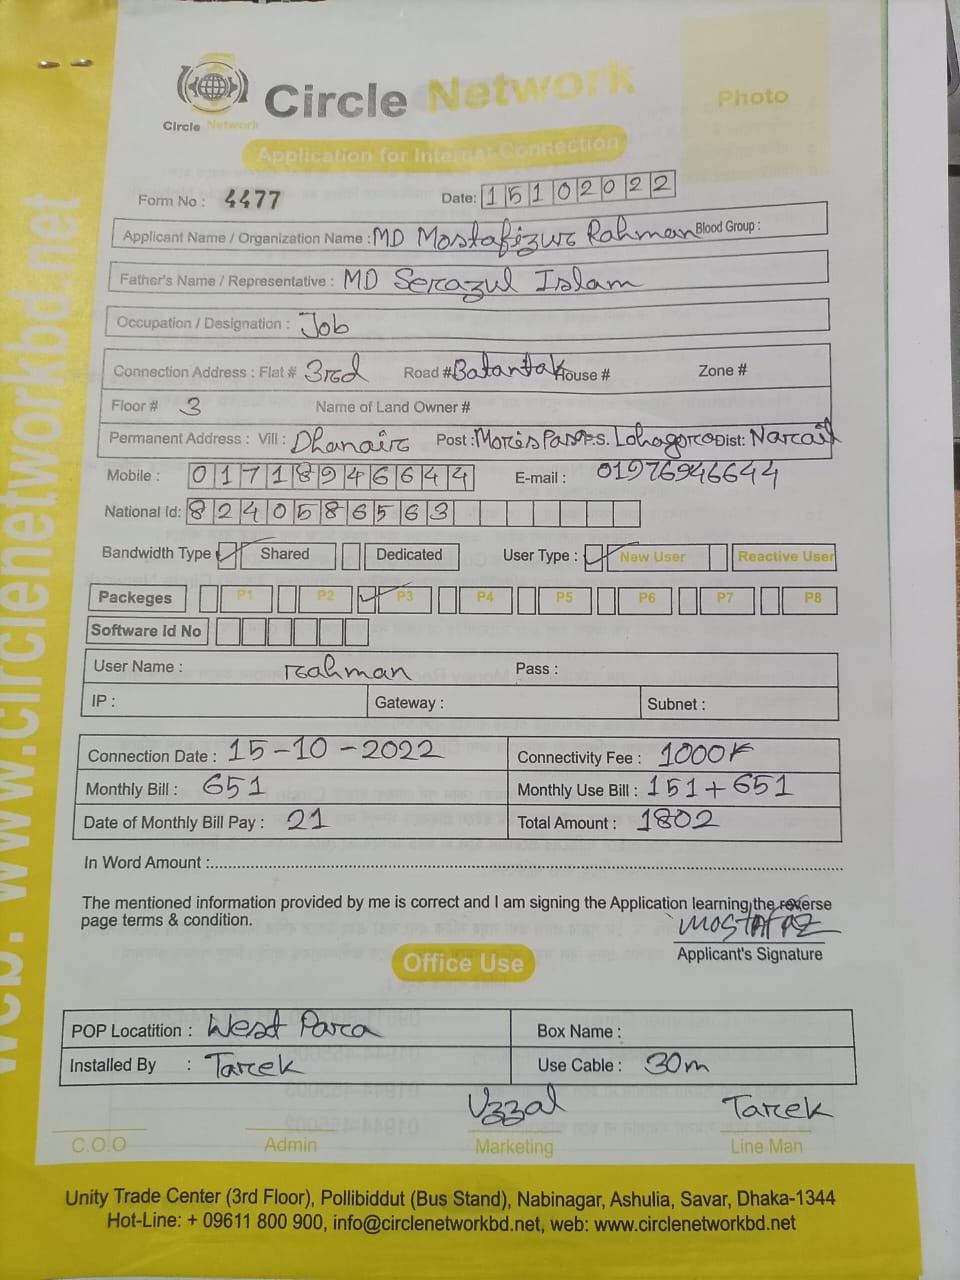 Circle Network
Circle Network
Photo
Application for Internet Connection
Form No : 4477
Date: 15102022
Applicant Name / Organization Name : MD Mostafizur Rahman Blood Group :
Father's Name / Representative : MD Serazul Islam
Occupation / Designation : Job
Connection Address : Flat # 3rd Road # Batantak House # Zone #
Floor # 3 Name of Land Owner #
Permanent Address : Vill : Dhanair Post : P.S. Lohagora Dist: Narail
Mobile : 01718946644 E-mail : 01976946644
National Id: 8240586563
Bandwidth Type Shared Dedicated User Type : New User Reactive User
Packeges P1 P2 P3 P4 P5 P6 P7 P8
Software Id No
User Name : rahman Pass :
IP : Gateway : Subnet :
Connection Date : 15-10-2022 Connectivity Fee : 1000
Monthly Bill : 651 Monthly Use Bill : 151 + 651
Date of Monthly Bill Pay : 21 Total Amount : 1802
In Word Amount :
The mentioned information provided by me is correct and I am signing the Application learning the reverse
page terms & condition.
Applicant's Signature
Office Use
POP Locatition : West Para Box Name :
Installed By : Tarek Use Cable : 30m
Uzzal Tarek
C.O.O Admin Marketing Line Man
Unity Trade Center (3rd Floor), Pollibiddut (Bus Stand), Nabinagar, Ashulia, Savar, Dhaka-1344
Hot-Line: + 09611 800 900, info@circlenetworkbd.net, web: www.circlenetworkbd.net
web: www.circlenetworkbd.net